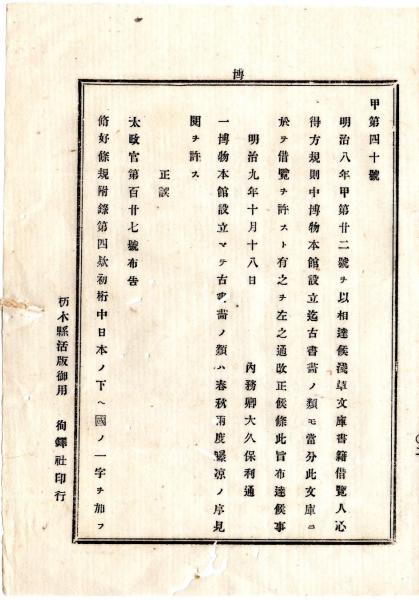 博
甲第四十號
明治八年甲第廿二號ヲ以相達候淺草文庫書籍借覽人心
得方規則中博物本館設立迄古書畵ノ類モ當分此文庫ニ
於テ借覽ヲ許スト有之ヲ左之通改正候條此旨布達候事
明治九年十月十八日
內務卿大久保利通
一博物本館設立マテ古書畵ノ類ハ春秋兩度曝凉ノ序見
閱ヲ許ス
正誤
太政官第百廿七號布告
脩好條規附錄第四欵初桁中日本ノ下ヘ國ノ一字ヲ加フ
栃木縣活版御用
徇鐸社印行